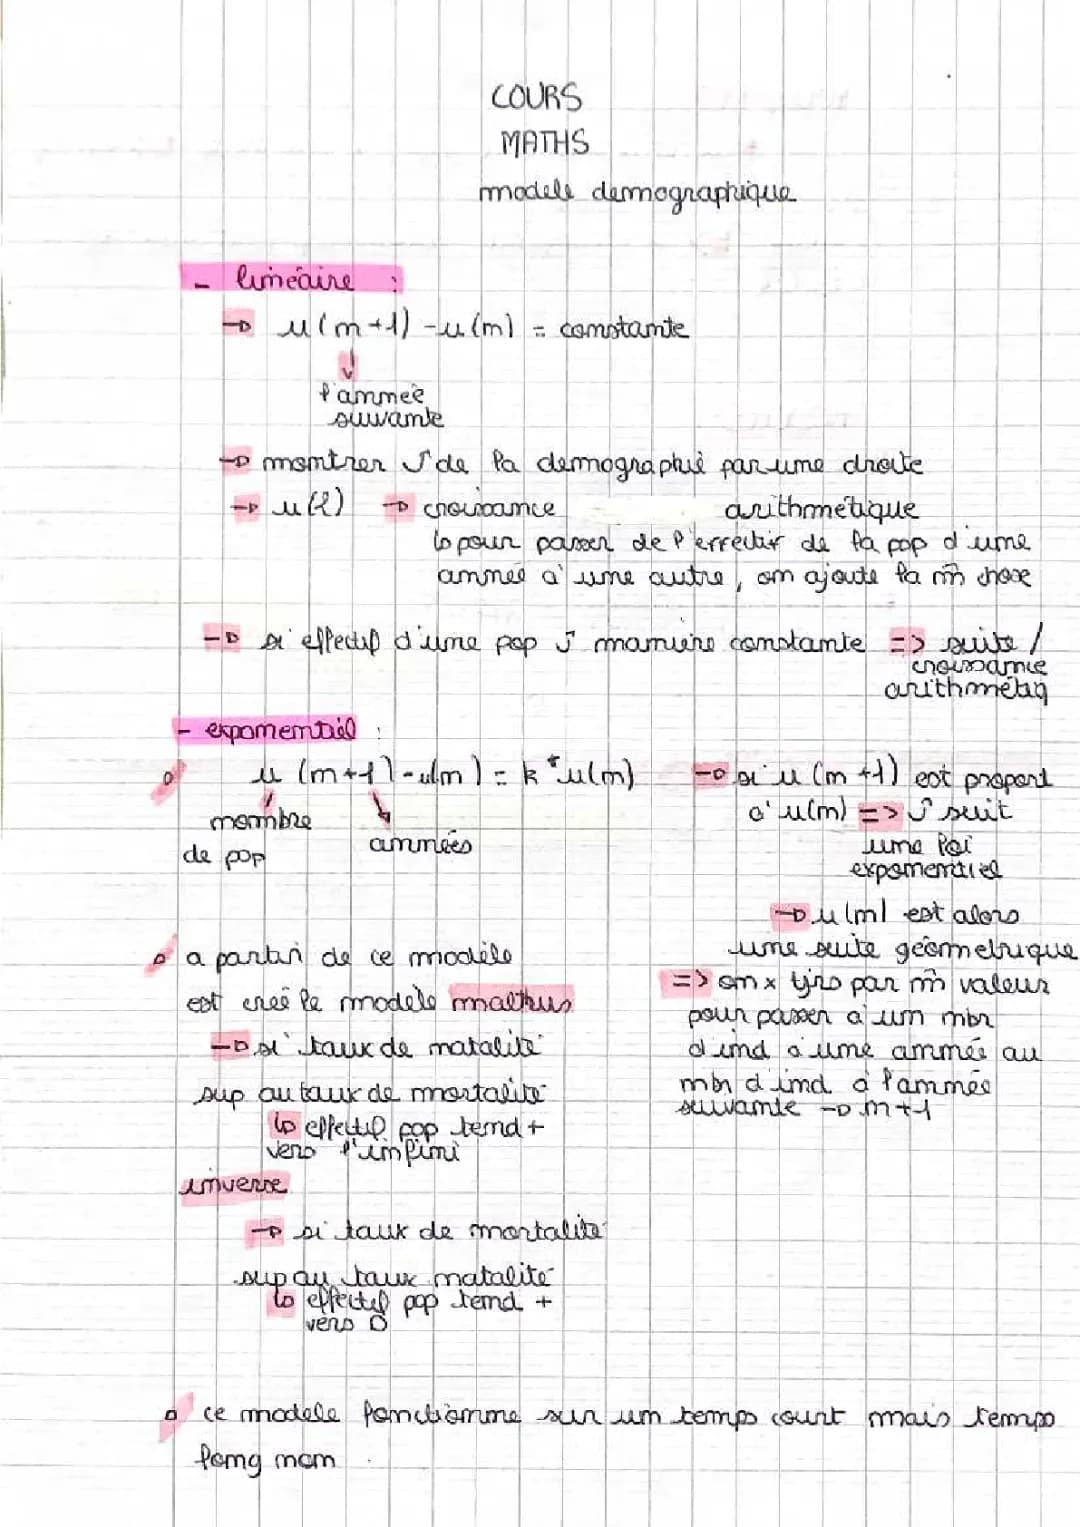 COURS
MATHS
modele demographique
- linéaire :
→ u(n+1) - u(n) = constante
↓
l'année
suivante
→ montrer de la demographie par une droite
→ croissance arithmétique
↳ pour passer de l'effectif de la pop d'une
année à une autre, on ajoute la m̂ chose
→ si effectif d'une pop manière constante => suite /
croissance
arithmétiq
- exponentiel :
u (n+1) - u(n) = k * u(n)
nombre
de pop
années
→ si u (n+1) est proport
à u(n) => suit
une loi
exponentiel
→ u(n) est alors
une suite géométrique
=> on x tjrs par m̂ valeur
pour passer à un nbr
d'ind à une année au
nbr d'ind à l'année
suivante → n+1
a partir de ce modèle
est creé le modèle malthus
→ si taux de natalité
sup au taux de mortalité
↳ effectif pop tend +
vers l'infini
inverse
→ si taux de mortalité
sup au taux natalité
↳ effectif pop tend +
vers 0
ce modele fonctionne sur un temps court mais temps
long non